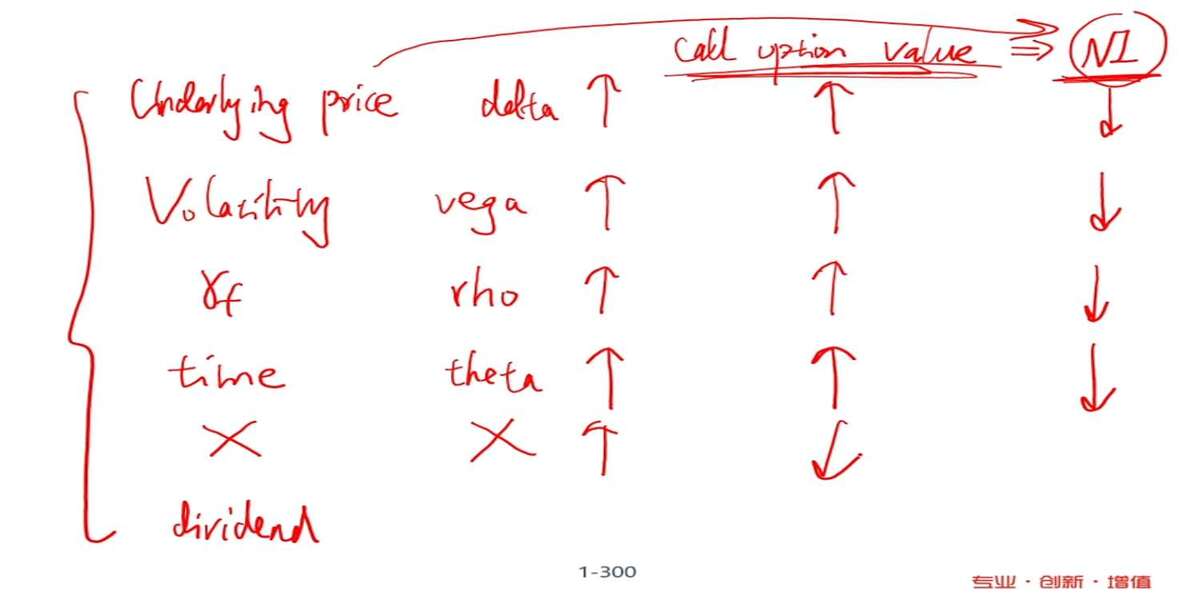 call option value ⇒ NI
Underlying price delta ↑ ↑ ↓
Volatility vega ↑ ↑ ↓
rf rho ↑ ↑ ↓
time theta ↑ ↑ ↓
X X ↑ ↓
dividend
1-300
专业·创新·增值